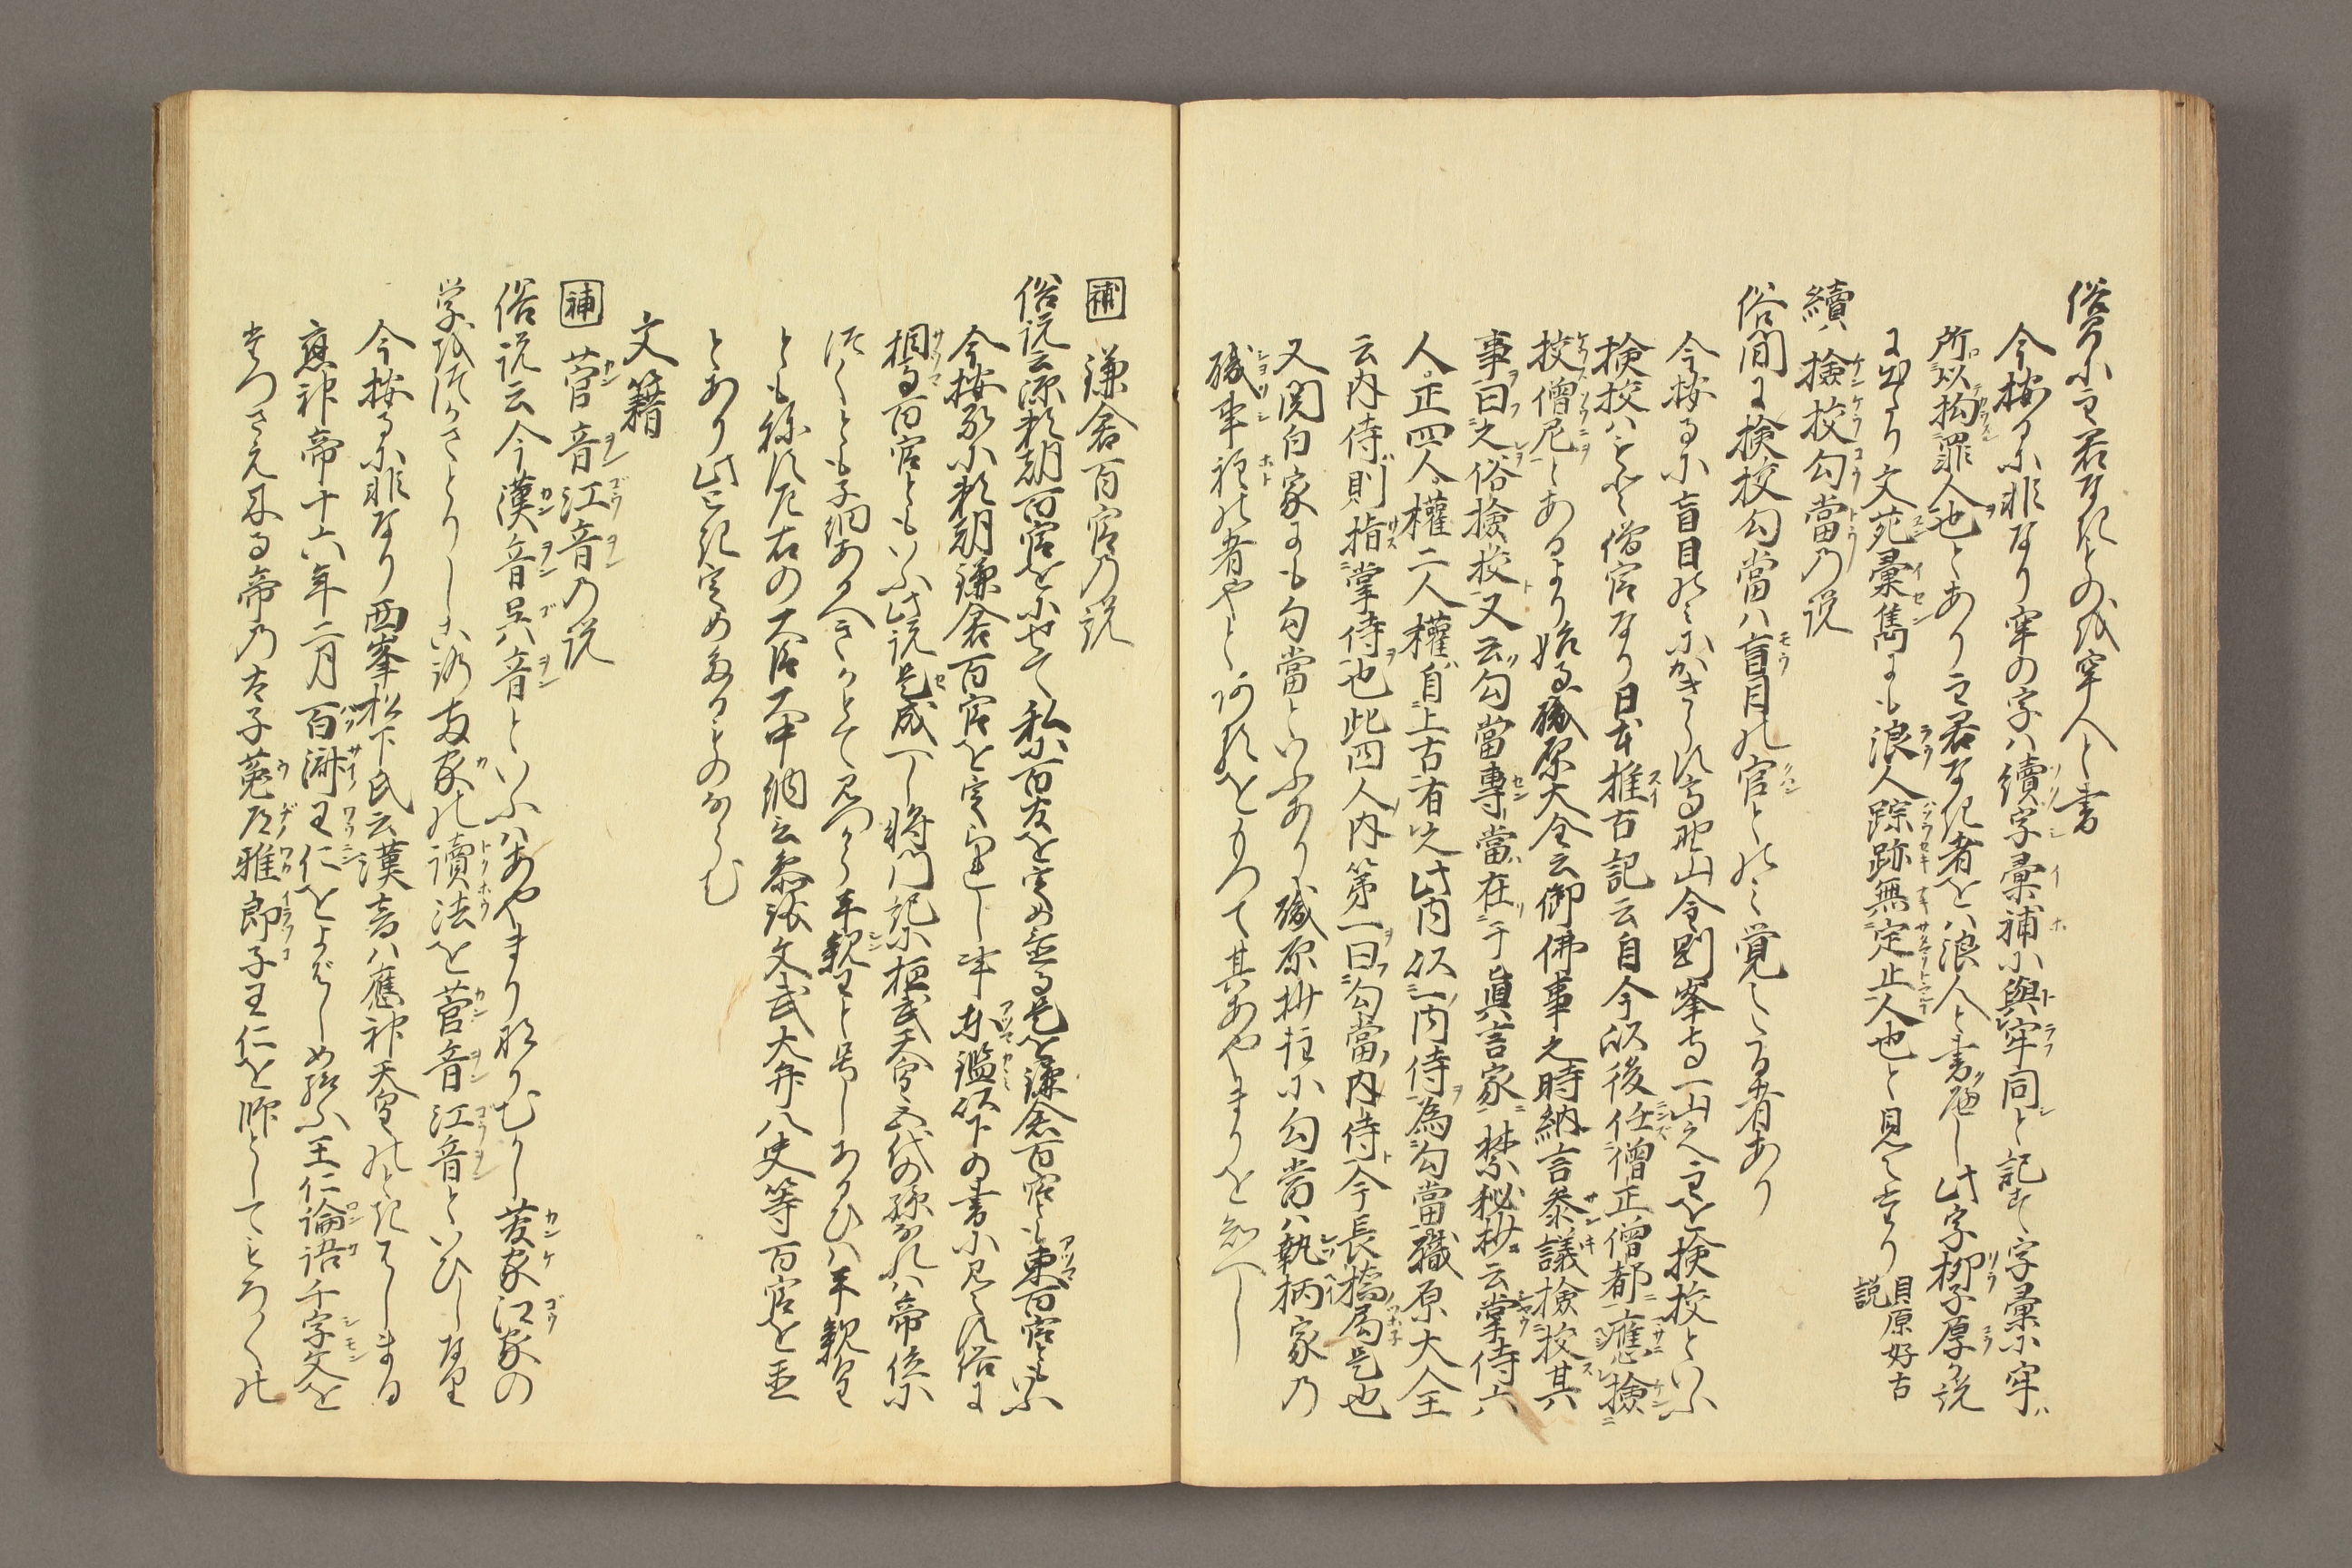 俗に主君なきもの成牢人と書
今按るに非なり牢の字ハ續字彙補に與牢同と記す字彙に牢ハ
所以拘罪人也とあり主君なき者をハ浪人と書へし此字柳子厚か説
に出たり文苑彙雋にも浪人踪跡無定止人也と見えたり 貝原好古説
續 撿挍勾當乃説
俗間に撿挍勾當ハ盲目の官とのミ覚えたる者あり
今按るに盲目のミにかきらす高野山金剛峯寺一山之主を撿挍といふ
撿挍ハもと僧官なり日本推古記云自今以後任僧正僧都應撿
挍僧尼とあるより始る職原大全云御佛事之時納言參議撿挍其
事曰之俗撿挍又云勾當專當在于眞言家禁秘抄云掌侍六
人正四人權二人權自上古有之此内以一内侍為勾當職原大全
云内侍則指掌侍也此四人内第一曰勾當内侍今長橋局是也
又関白家にも勾當といふあり職原抄註に勾當ハ執柄家乃
職事程の者やと 何れをもつて其あやまりを知へし
補 鎌倉百官乃説
俗説云源頼朝百官を似せて私に百友を定め並る是を鎌倉百官とも東百官ともいふ
今按るに頼朝鎌倉百官を定られし事東鑑以下の書に見えす俗に
相馬百官ともいふ此説是成へし将門記に桓武天皇五代の孫なれハ帝位に
つくとも子細あるへきかとて見つから平親王と号しあるひハ平親皇
とも称す左右の大臣大中納言參議文武大弁八史等百官を並
とあり此とき定めたるものならむ
文籍
補 菅音江音乃説
俗説云今漢音呉音といふハあやまりなりむかし菅家江家の
学成けつかさとりしに両家の讀法を菅音江音といひしなり
今按るに非なり西峯松下氏云漢音ハ應神天皇のときはしまる
應神帝十六年二月百濟王仁をよはしめ給ふ王仁論語千字文を
たつさえ来る帝乃太子菟道雅郎子王仁を師としてもろく の